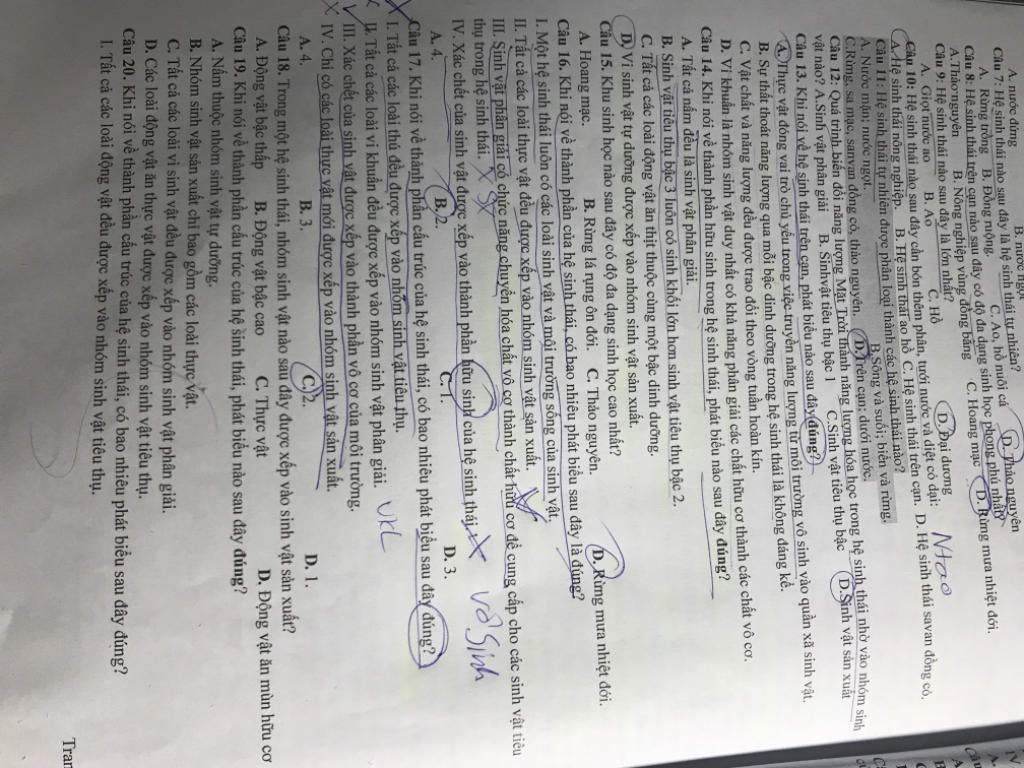 B. nước ngọt
A. nước đứng
Câu 7: Hệ sinh thái nào sau đây là hệ sinh thái tự nhiên?
A. Rừng trồng B. Đồng ruộng. C. Ao, hồ nuôi cá D. Thảo nguyên
Câu 8: Hệ sinh thái trên cạn nào sau đây có độ đa dạng sinh học phong phú nhất?
A.Thảo nguyên B. Nông nghiệp vùng đồng bằng C. Hoang mạc D. Rừng mưa nhiệt đới.
Câu 9: Hệ sinh thái nào sau đây là lớn nhất?
A. Giọt nước ao B. Ao C. Hồ D. Đại dương
Câu 10: Hệ sinh thái nào sau đây cần bón thêm phân, tưới nước và diệt cỏ dại: N tạo
A. Hệ sinh thái nông nghiệp. B. Hệ sinh thái ao hồ C. Hệ sinh thái trên cạn. D. Hệ sinh thái savan đồng cỏ.
Câu 11: Hệ sinh thái tự nhiên được phân loại thành các hệ sinh thái nào?
A. Nước mặn; nước ngọt. B.Sông và suối; biển và rừng.
C.Rừng, sa mạc, sanvan đồng cỏ, thảo nguyên. D. Trên cạn; dưới nước.
Câu 12: Quá trình biến đổi năng lượng Mặt Trời thành năng lượng hóa học trong hệ sinh thái nhờ vào nhóm sinh
vật nào? A.Sinh vật phân giải B. Sinhvật tiêu thụ bậc 1 C.Sinh vật tiêu thụ bậc D. Sinh vật sản xuất
Câu 13. Khi nói về hệ sinh thái trên cạn, phát biểu nào sau đây đúng?
A. Thực vật đóng vai trò chủ yếu trong việc truyền năng lượng từ môi trường vô sinh vào quần xã sinh vật.
B. Sự thất thoát năng lượng qua mỗi bậc dinh dưỡng trong hệ sinh thái là không đáng kể.
C. Vật chất và năng lượng đều được trao đổi theo vòng tuần hoàn kín.
D. Vi khuẩn là nhóm sinh vật duy nhất có khả năng phân giải các chất hữu cơ thành các chất vô cơ.
Câu 14. Khi nói về thành phần hữu sinh trong hệ sinh thái, phát biểu nào sau đây đúng?
A. Tất cả nấm đều là sinh vật phân giải.
B. Sinh vật tiêu thụ bậc 3 luôn có sinh khối lớn hơn sinh vật tiêu thụ bậc 2.
C. Tất cả các loài động vật ăn thịt thuộc cùng một bậc dinh dưỡng.
D. Vi sinh vật tự dưỡng được xếp vào nhóm sinh vật sản xuất.
Câu 15. Khu sinh học nào sau đây có độ đa dạng sinh học cao nhất?
A. Hoang mạc. B. Rừng lá rụng ôn đới. C. Thảo nguyên. D. Rừng mưa nhiệt đới.
Câu 16. Khi nói về thành phần của hệ sinh thái, có bao nhiêu phát biểu sau đây là đúng?
I. Một hệ sinh thái luôn có các loài sinh vật và môi trường sống của sinh vật.
II. Tất cả các loài thực vật đều được xếp vào nhóm sinh vật sản xuất.
III. Sinh vật phân giải có chức năng chuyển hóa chất vô cơ thành chất hữu cơ để cung cấp cho các sinh vật tiêu
thụ trong hệ sinh thái. X SX
IV. Xác chết của sinh vật được xếp vào thành phần hữu sinh của hệ sinh thái. X vô sinh
A. 4. B. 2. C. 1. D. 3.
Câu 17. Khi nói về thành phần cấu trúc của hệ sinh thái, có bao nhiêu phát biểu sau đây đúng?
I. Tất cả các loài thú đều được xếp vào nhóm sinh vật tiêu thụ.
II. Tất cả các loài vi khuẩn đều được xếp vào nhóm sinh vật phân giải. VKL
III. Xác chết của sinh vật được xếp vào thành phần vô cơ của môi trường.
IV. Chỉ có các loài thực vật mới được xếp vào nhóm sinh vật sản xuất.
A. 4. B. 3. C. 2. D. 1.
Câu 18. Trong một hệ sinh thái, nhóm sinh vật nào sau đây được xếp vào sinh vật sản xuất?
A. Động vật bậc thấp B. Động vật bậc cao C. Thực vật D. Động vật ăn mùn hữu cơ
Câu 19. Khi nói về thành phần cấu trúc của hệ sinh thái, phát biểu nào sau đây đúng?
A. Nấm thuộc nhóm sinh vật tự dưỡng.
B. Nhóm sinh vật sản xuất chỉ bao gồm các loài thực vật.
C. Tất cả các loài vi sinh vật đều được xếp vào nhóm sinh vật phân giải.
D. Các loài động vật ăn thực vật được xếp vào nhóm sinh vật tiêu thụ.
Câu 20. Khi nói về thành phần cấu trúc của hệ sinh thái, có bao nhiêu phát biểu sau đây đúng?
I. Tất cả các loài động vật đều được xếp vào nhóm sinh vật tiêu thụ.
Tran